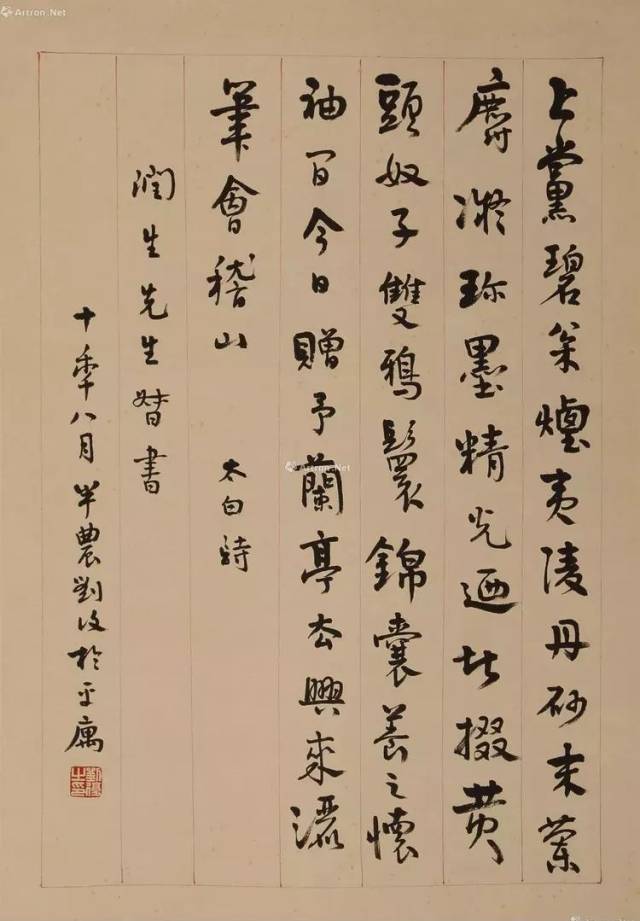 上黨碧松煙夷陵丹砂末蘭
麝凝珍墨精光迺堪掇黄
頭奴子雙鴉鬟錦囊養之懷
袖間今日贈予蘭亭去興來灑
筆會稽山
太白詩
潤生先生督書
十年八月半農劉復於平寓
Artron.Net
Artron.Net